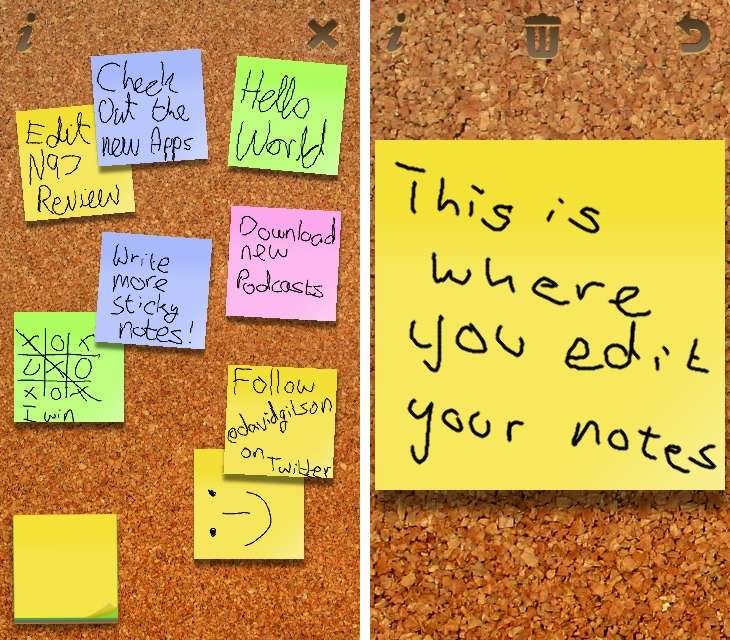 i
Check
Out the
new Apps
Hello
World
Edit
N97
Review
Download
new
Podcasts
Write
more
sticky
notes!
X O X
O X O
X O X
I win
Follow
@davidgilson
on Twitter
i
This is
where
you edit
your notes